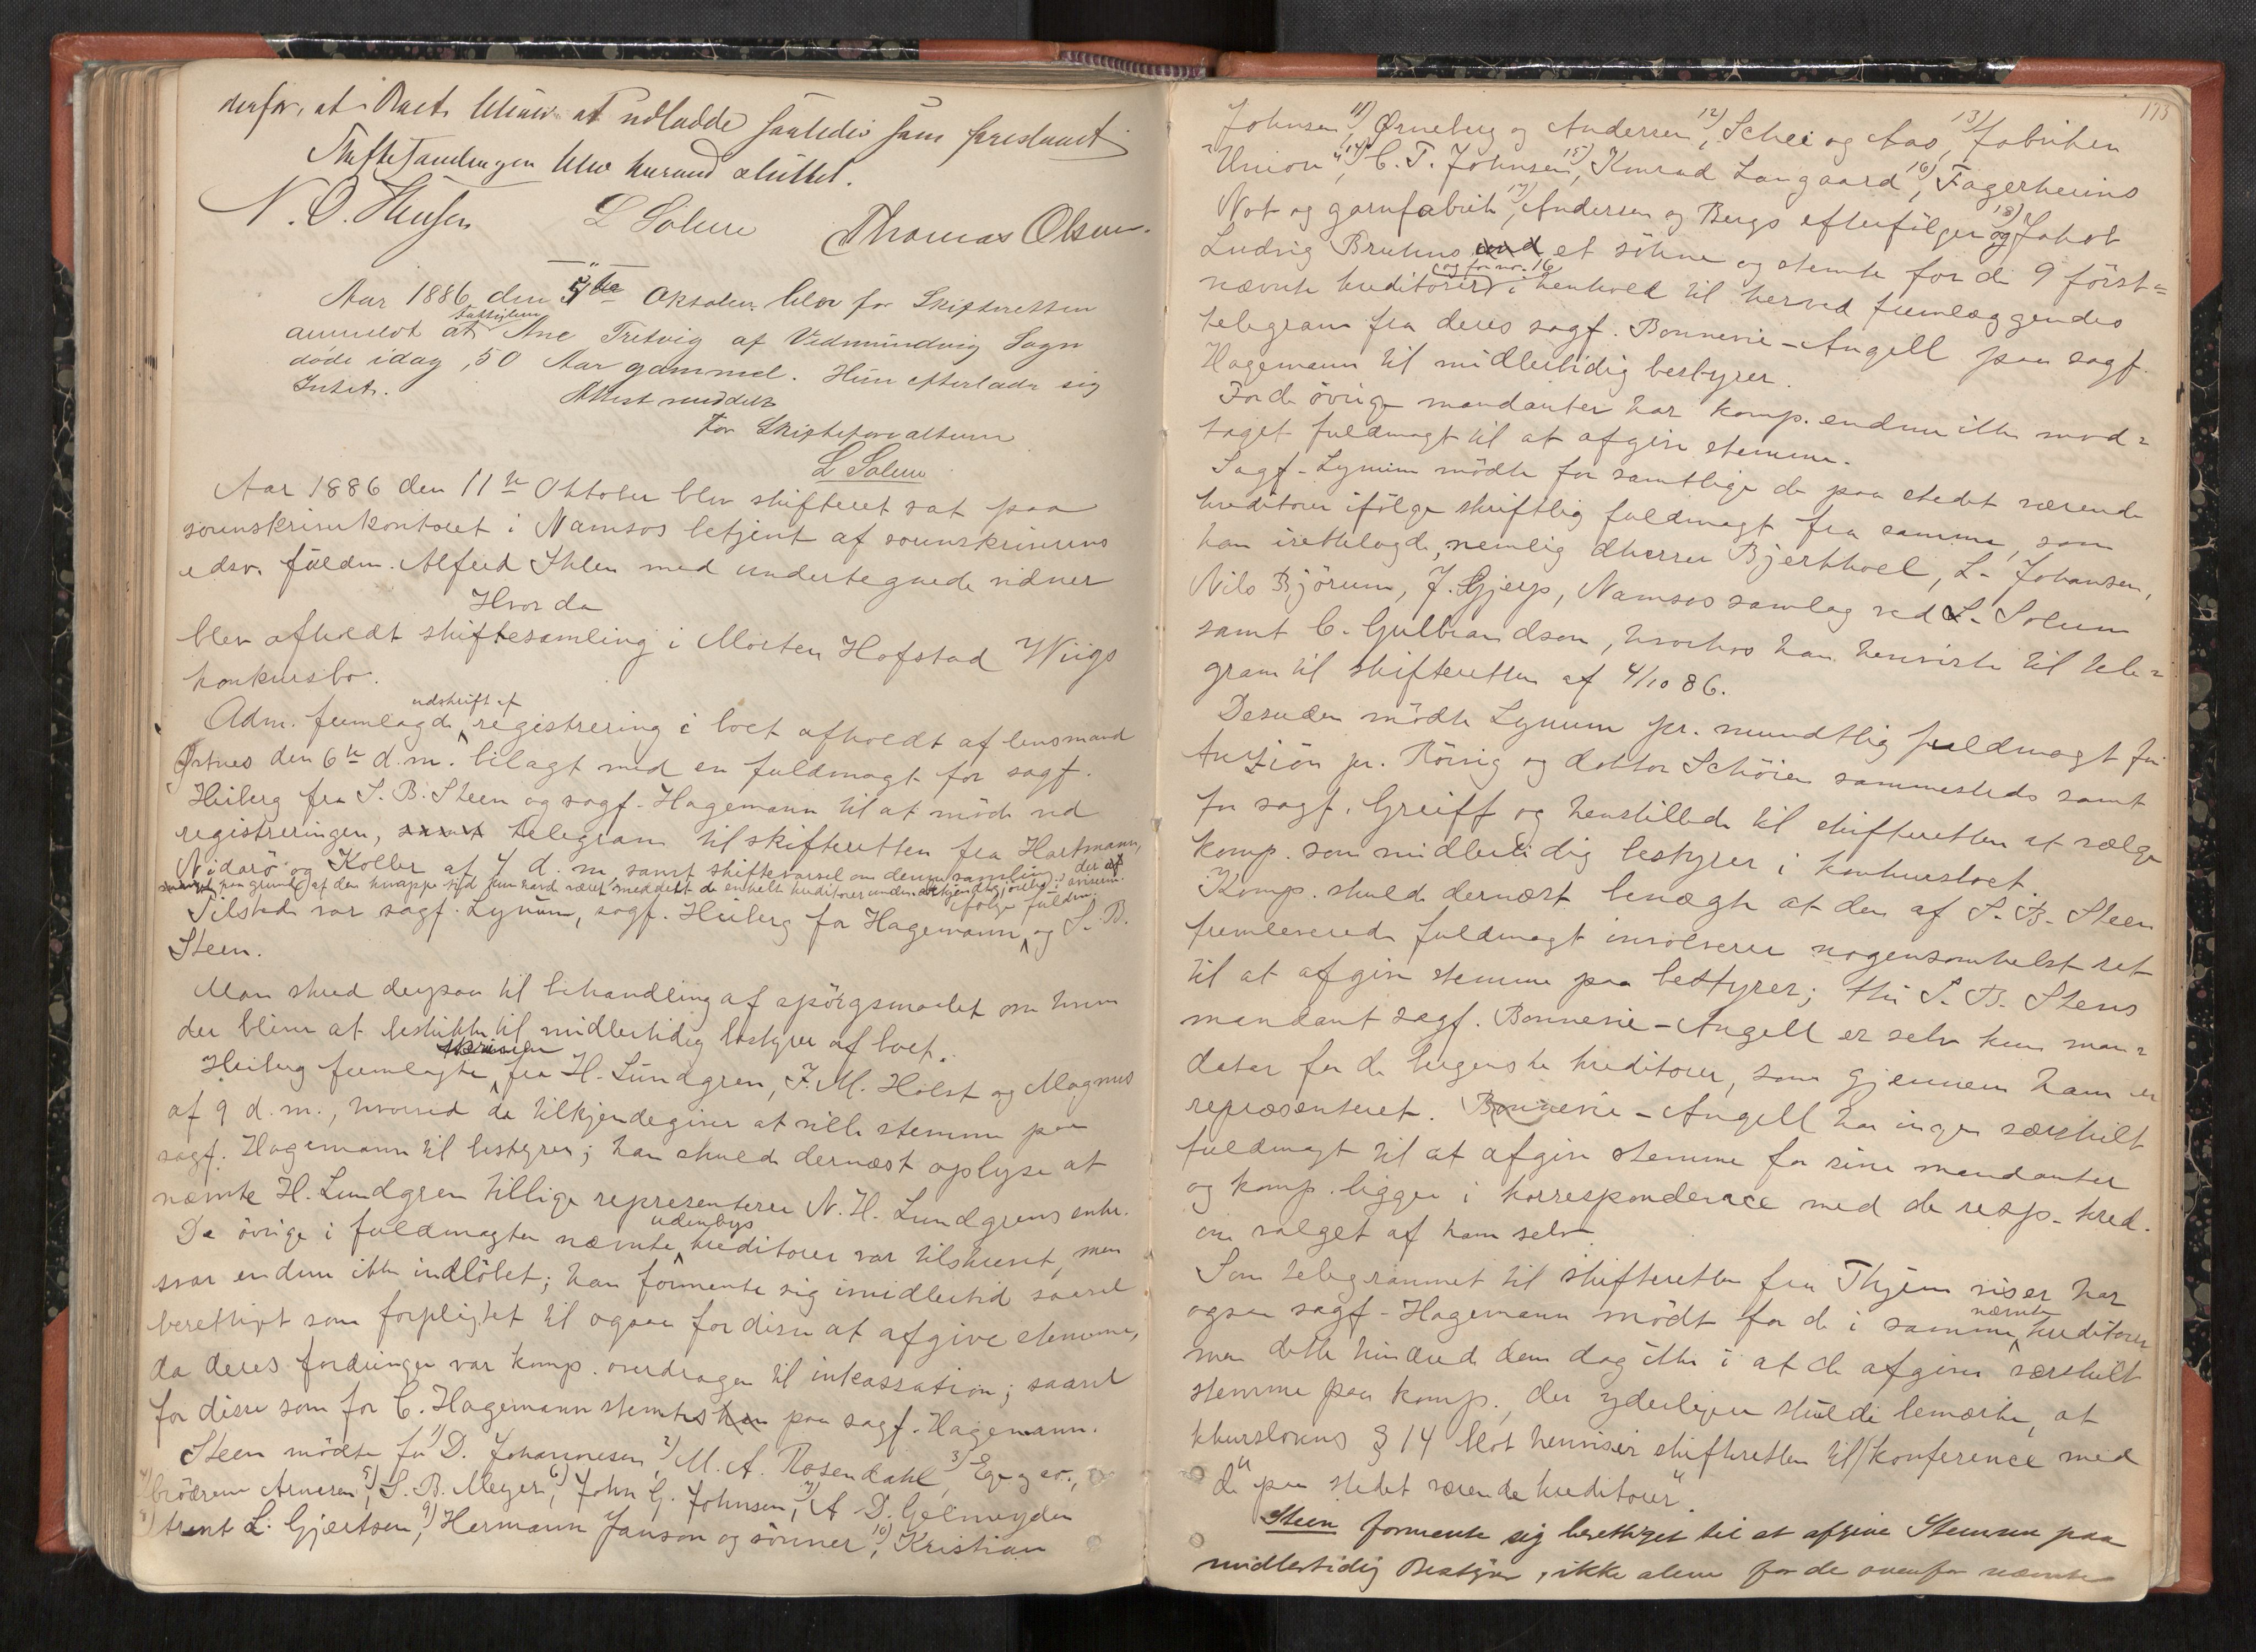 derfor, at Boets bliver at udlodde saaledes som foreslaaet
Skiftesamlingen blev herved sluttet.
N. O. Hensen L Solem Thomas Olsen.
Aar 1886 den 5te Oktober blev for Skifteretten
anmeldt at fattiglem Ane Tretvig af Vedmundvig Sogn
døde idag, 50 Aar gammel. Hun efterlader sig
Intet. Attest meddelt
For Skifteforvalteren
L Solem
Aar 1886 den 11te Oktober blev skifteret sat paa
sorenskriverkontoret i Namsos betjent af sorenskriverens
edsv. fuldm. Alfred Ihlen med undertegnede vidner
Hvor da
blev afholdt skiftesamling i Morten Hofstad Wiigs
konkursbo.
Adm. fremlagde udskrift af registrering i boet afholdt af lensmand
Ørtnes den 6te d.m. bilagt med en fuldmagt for sagf.
Heiberg fra S. B. Steen og sagf. Hagemann til at møde ved
registreringen, samt telegram til skifteretten fra Hartmann,
Nidarø og Koller af 7 d. m. samt skiftevarsel om denne samling, der af
paa grund af den knappe tid kun havde været meddelt de enkelte kreditorer under bekjendtgjørelse i aviserne.
Tilstede var sagf. Lynum, sagf. Heiberg for Hagemann ifølge fuldm. og S. B.
Steen.
Man skred derpaa til behandling af spörgsmaalet om hvem
der bliver at beskikke til midlertidig bestyrer af boet.
Heiberg fremlagte skrivelse fra H. Lundgren, F. M. Holst og Magnus
af 9 d. m., hvorved de tilkjendegiver at ville stemme paa
sagf. Hagemann til bestyrer; han skulde dernæst oplyse at
nævnte H. Lundgren tillige representerer N. H. Lundgrens enke.
De övrige i fuldmagten nævnte udenbys kreditorer var tilskrevet, men
svar endnu ikke indlöbet; han formente sig imidlertid saavel
berettiget som forpligtet til ogsaa for disse at afgive stemme,
da deres fordringer var komp. overdragen til inkassation; saavel
for disse som for C. Hagemann stemtes han paa sagf. Hagemann.
Steen mödte for 1) D. Johannesen, 2) M. A. Rosendahl, 3) Ege og co.,
4) brödrene Arnesen, 5) S. B. Meyer, 6) John G. Johnsen, 7) A D. Gelmeyden
8) Arent L. Gjertsen, 9) Hermann Janson og sönner, 10) Kristian
173
Johnsen 11) Ørneberg og Andersen, 12) Schei og Aas, 13) fabriken
"Union", 14) C. T. Johnsen, 15) Konrad Langaard, 16) Fagerheims
Not og garnfabrik, 17) Andersen og Bergs efterfölger og 18) Jakob
Ludvig Bruhns et söhne og stemte for de 9 först=
nævnte kreditorer og for nr. 16 i henhold til herved fremlæggendes
telegram fra deres sagf. Bonnevie-Angell paa sagf.
Hagemann til midlertidig bestyrer.
For de övrige mandanter har komp. endnu ikke mod=
taget fuldmagt til at afgive stemme.
Sagf. Lynum mödte for samtlige de paa stedet værende
kreditorer ifölge skriftlig fuldmagt fra samme, som
han iretteelagde, nemlig dherrer Bjerkhoel, L. Johansen,
Nils Björum, J. Gjerp, Namsos samlag ved L. Solum
samt C. Gulbrandsen, hvorhos han henviste til tele=
gram til skifteretten af 4/10 86.
Desuden mödte Lynum pr. mundtlig fuldmagt for
Aursjön pr. Rörvig og doktor Schöien sammesteds samt
for sagf. Greiff og henstillede til skifteretten at vælge
komp. som midlertidig bestyrer i konkursboet.
Komp. skulde dernæst benægte at den af S. B. Steen
fremleverede fuldmagt involverer nogensomhelst ret
til at afgive stemme paa bestyrer; thi S. B. Stens
mandant sagf. Bonnevie-Angell er selv kun man=
datar for de bergenske kreditorer, som gjennem ham er
repræsenteret. Bonnevie-Angell har ingen særskilt
fuldmagt til at afgive stemme for sine mandanter
og komp. ligger i korrespondence med de resp. kred.
om valget af ham selv.
Som telegrammet til skifteretten fra Thjem viser har
ogsaa sagf. Hagemann mödt for de i samme nævnte kreditorer
men dette hindrede dem dog ikke i at de afgiver særskilt
stemme paa komp., der yderligere skulde bemærke, at
kkurslovens § 14 blot henviser skifteretten til "konference med
de paa stedet værende kreditorer".
Steen formente sig berettiget til at afgive Stemme paa
midlertidig Bestyrer, ikke alene for de ovenfor nævnte